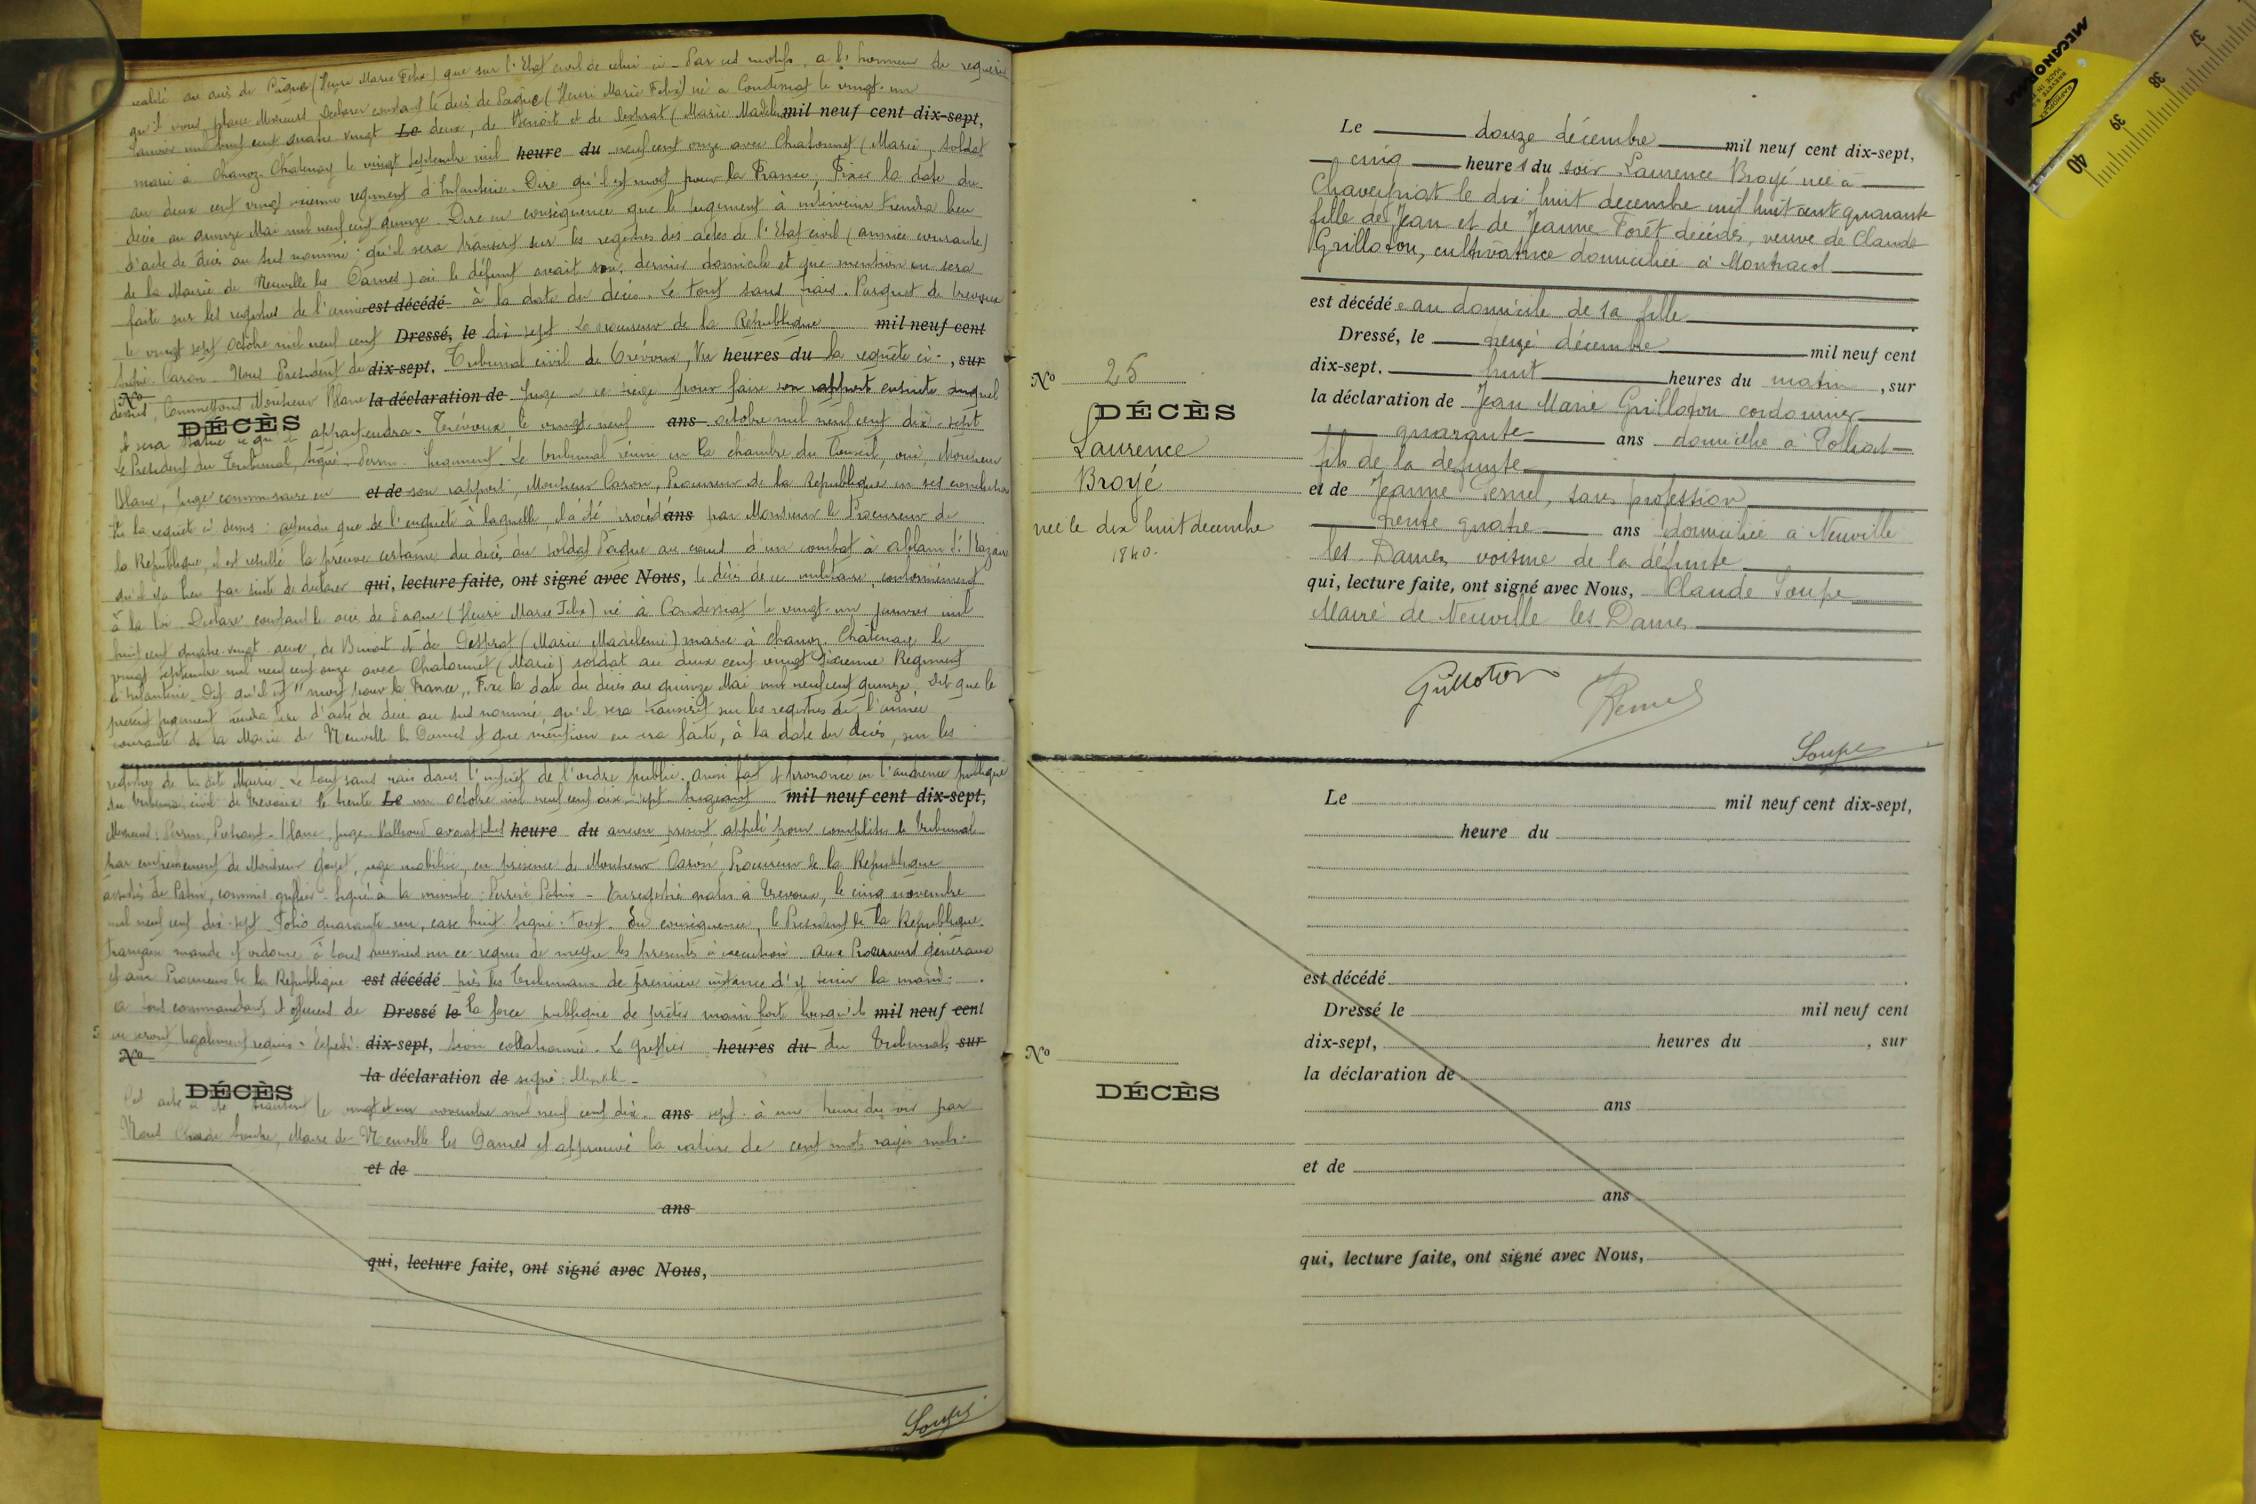 réalité au décès de Pâque (Henri Marie Felix) que sur l'Etat civil de celui ci - Par ces motifs, a l'honneur de requérir
qu'il vous plaise Messieurs Déclarer constant le décès de Pâque (Henri Marie Felix) né à Condeissiat le vingt-un
Janvier mil huit cent quatre vingt Le deux, de Benoit et de (Marie Madelei mil neuf cent dix-sept,
marié à Chanoz-Chatenay le vingt septembre mil heure du neuf cent onze avec Chatonnet (Marie), soldat
au deux cent vingt régiment d'Infanterie. Dire qu'il est mort pour la France, Fixer la date du
décès au quinze Mai mil neuf cent quinze. Dire en conséquence que le jugement à intervenir tiendra lieu
d'acte de décès au sus nommé ; qu'il sera transcrit sur les registres des actes de l'Etat civil (année courante)
de la Mairie de Neuville les Dames, où le défunt avait son dernier domicile et que mention en sera
faite sur les registres de l'année est décédé à la date du décès. Le tout sans frais. Parquet de Trévoux
le vingt sept octobre mil neuf cent Dressé, le dix sept Le procureur de la République mil neuf cent
signé Caron. Nous Président du dix-sept, Tribunal civil de Trévoux, Vu heures du la requête ci-, sur
dessus, Commettons Monsieur Blanc la déclaration de Juge à ce siège pour faire son rapport ensuite duquel
N°
DÉCÈS
il sera statué ce qu'il appartiendra. Trévoux le vingt-neuf ans octobre mil neuf cent dix-sept
Le Président du Tribunal, signé Perrin. Jugement. Le tribunal réuni en la chambre du Conseil, ouï, Monsieur
Blanc, juge commissaire en et de son rapport, Monsieur Caron, Procureur de la République en ses conclusions
Vu la requête ci dessus : attendu que de l'enquête à laquelle il a été procédé ans par Monsieur le Procureur de
la République, il est résulté la preuve certaine du décès du soldat Pâque au cours d'un combat à Ablain St Nazaire
qu'il y a lieu par suite de déclarer qui, lecture faite, ont signé avec Nous, le décès de ce militaire, conformément
à la loi Déclare constant le décès de Pâque (Henri Marie Felix) né à Condeissiat le vingt-un janvier mil
huit cent quatre-vingt deux, de Benoit et de (Marie Madeleine) marié à Chanoz-Châtenay le
vingt septembre mil neuf cent onze avec Chatonnet (Marie) soldat au deux cent vingt Régiment
d'Infanterie. Dit qu'il est "mort pour la France". Fixe la date du décès au quinze Mai mil neuf cent quinze. Dit que le
présent jugement tiendra lieu d'acte de décès au sus nommé, qu'il sera transcrit sur les registres de l'année
courante de la Mairie de Neuville les Dames et que mention en sera faite, à la date du décès, sur les
registres de la dite Mairie. Le tout sans frais dans l'intérêt de l'ordre public. Ainsi fait et prononcé en l'audience publique
du tribunal civil de Trévoux le trente Le un octobre mil neuf cent dix-sept. Siégeant mil neuf cent dix-sept,
Messieurs : Perrin, Président - Blanc, juge avocat plus heure du ancien présent appelé pour compléter le Tribunal
par empêchement de Monsieur juge mobilisé, en présence de Monsieur Caron, Procureur de la République
assistés de Patin, commis greffier. Signé à la minute : Perrin Patin - Enregistré gratis à Trévoux, le cinq novembre
mil neuf cent dix-sept Folio quarante un, case huit signé En conséquence, le Président de la République
française mande et ordonne à tous huissiers sur ce requis de mettre les présents à exécution aux Procureurs généraux
et aux Procureurs de la République est décédé près les Tribunaux de première instance d'y tenir la main.
à tous commandants et officiers de Dressé le la force publique de prêter main forte lorsqu'ils mil neuf cent
en seront légalement requis. Expédi- dix-sept, tion collationnée. Le Greffier heures du du Tribunal, sur
N°
la déclaration de signé
DÉCÈS
Cet acte a été transcrit le vingt et un novembre mil neuf cent dix- ans sept à une heure du soir par
Nous Claude Soupe, Maire de Neuville les Dames et approuvé la rature de cent mots rayés nuls.
et de
ans
qui, lecture faite, ont signé avec Nous,
Soupe
Le douze décembre mil neuf cent dix-sept,
cinq heures du soir Laurence Broyé née à
Chaveyriat le dix huit decembre mil huit cent quarante
fille de Jean et de Jeanne Forêt décédés, veuve de Claude
Grilloton, cultivatrice domiciliée à Montracol
est décédée au domicile de sa fille
Dressé, le treize décembre mil neuf cent
dix-sept. huit heures du matin, sur
la déclaration de Jean Marie Grilloton cordonnier
quarante ans domicilié à Polliat
fils de la défunte
et de Jeanne Pernel, sans profession
trente quatre ans domiciliée à Neuville
les Dames voisine de la défunte
qui, lecture faite, ont signé avec Nous, Claude Soupe
Maire de Neuville les Dames
N° 25
DÉCÈS
Laurence
Broyé
née le dix huit decembre
1840.
Grilloton
Soupe
Le mil neuf cent dix-sept,
heure du
est décédé
Dressé le mil neuf cent
dix-sept, heures du , sur
la déclaration de
ans
et de
ans
qui, lecture faite, ont signé avec Nous,
N°
DÉCÈS
MECANORMA
37
38
39
40